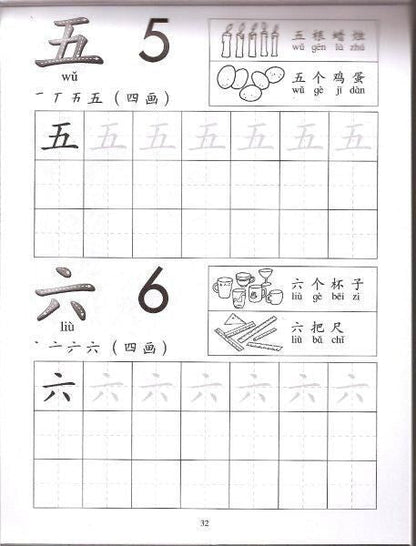 五 5
五 根 蜡 烛
wǔ gēn là zhú
wǔ
五 个 鸡 蛋
wǔ gè jī dàn
一 丆 五 五 (四 画)
五 五 五 五 五 五 五
六 6
六 个 杯 子
liù gè bēi zi
liù
六 把 尺
liù bǎ chǐ
丶 亠 六 六 (四 画)
六 六 六 六 六 六 六
32